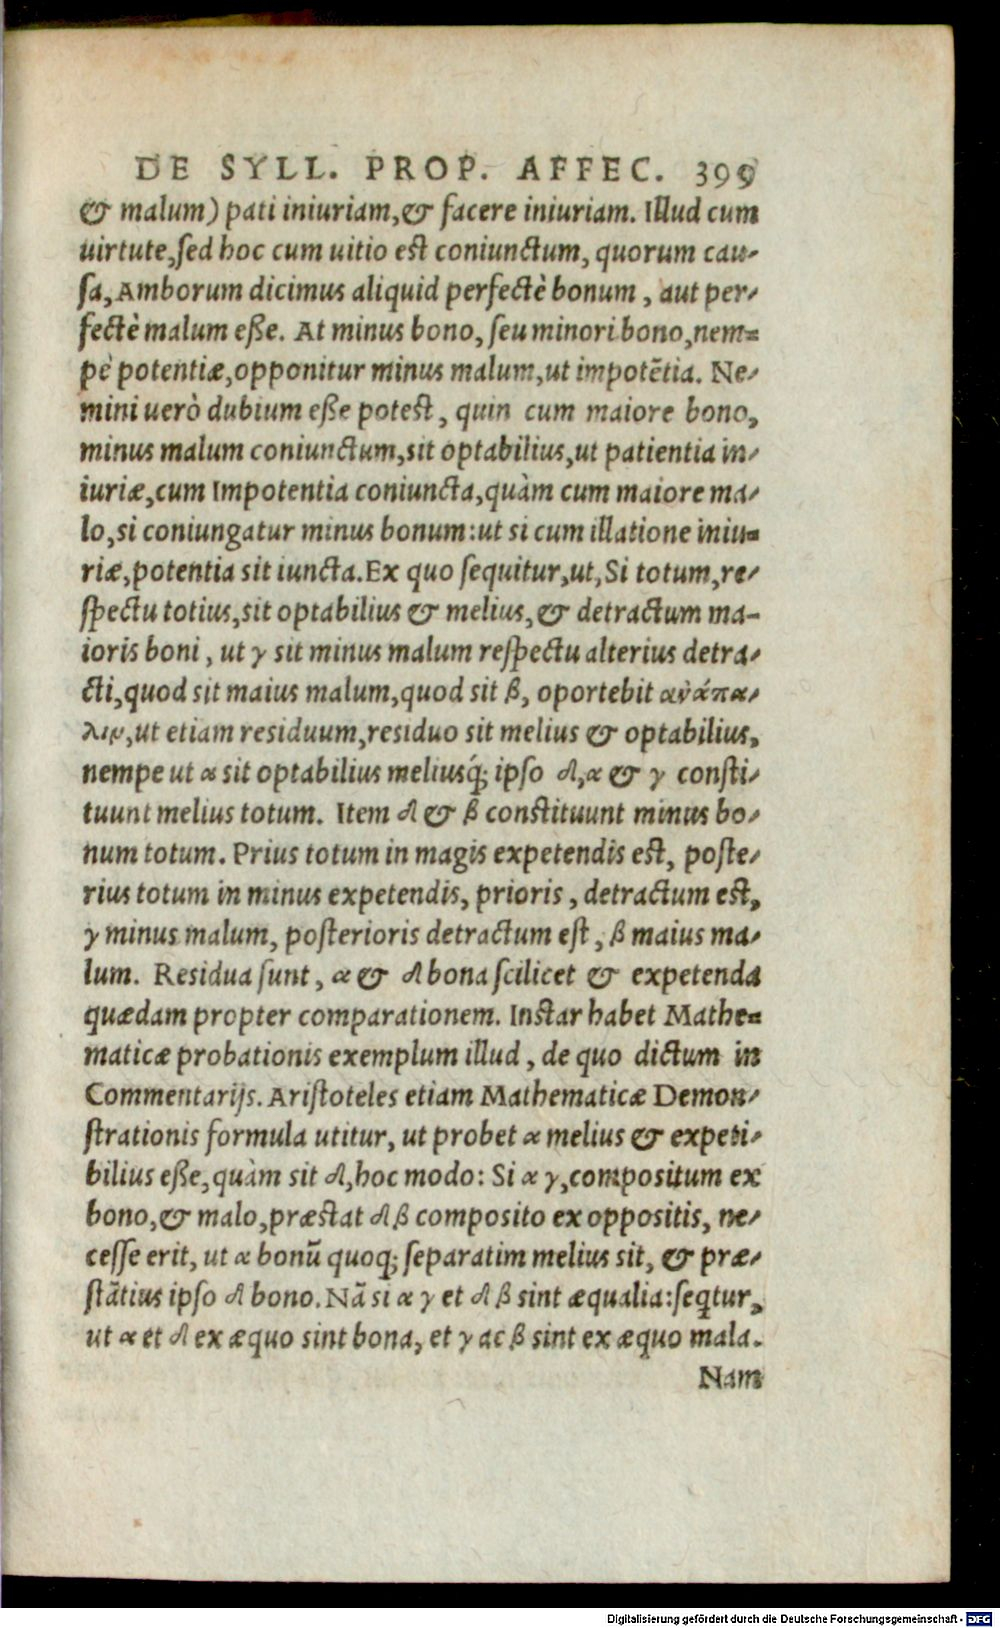 DE SYLL. PROP. AFFEC. 399
& malum) pati iniuriam, & facere iniuriam. Illud cum
uirtute, sed hoc cum uitio est coniunctum, quorum cau-
sa, Amborum dicimus aliquid perfectè bonum, aut per-
fectè malum eße. At minus bono, seu minori bono, nem-
pè potentiæ, opponitur minus malum, ut impotẽtia. Ne-
mini uerò dubium eße potest, quin cum maiore bono,
minus malum coniunctum, sit optabilius, ut patientia in-
iuriæ, cum Impotentia coniuncta, quàm cum maiore ma-
lo, si coniungatur minus bonum: ut si cum illatione iniu-
riæ, potentia sit iuncta. Ex quo sequitur, ut, Si totum, re-
spectu totius, sit optabilius & melius, & detractum ma-
ioris boni, ut γ sit minus malum respectu alterius detra-
cti, quod sit maius malum, quod sit β, oportebit ἀνάπα-
λιν, ut etiam residuum, residuo sit melius & optabilius,
nempe ut α sit optabilius meliusq́; ipso δ, α & γ consti-
tuunt melius totum. Item δ & β constituunt minus bo-
num totum. Prius totum in magis expetendis est, poste-
rius totum in minus expetendis, prioris, detractum est,
γ minus malum, posterioris detractum est, β maius ma-
lum. Residua sunt, α & δ bona scilicet & expetenda
quædam propter comparationem. Instar habet Mathe-
maticæ probationis exemplum illud, de quo dictum in
Commentarijs. Aristoteles etiam Mathematicæ Demon-
strationis formula utitur, ut probet α melius & expeti-
bilius eße, quàm sit δ, hoc modo: Si α γ, compositum ex
bono, & malo, præstat δ β composito ex oppositis, ne-
cesse erit, ut α bonũ quoq; separatim melius sit, & præ-
stãtius ipso δ bono. Nã si α γ et δ β sint æqualia: seq̃tur,
ut α et δ ex æquo sint bona, et γ ac β sint ex æquo mala.
Nam
Digitalisierung gefördert durch die Deutsche Forschungsgemeinschaft - DFG